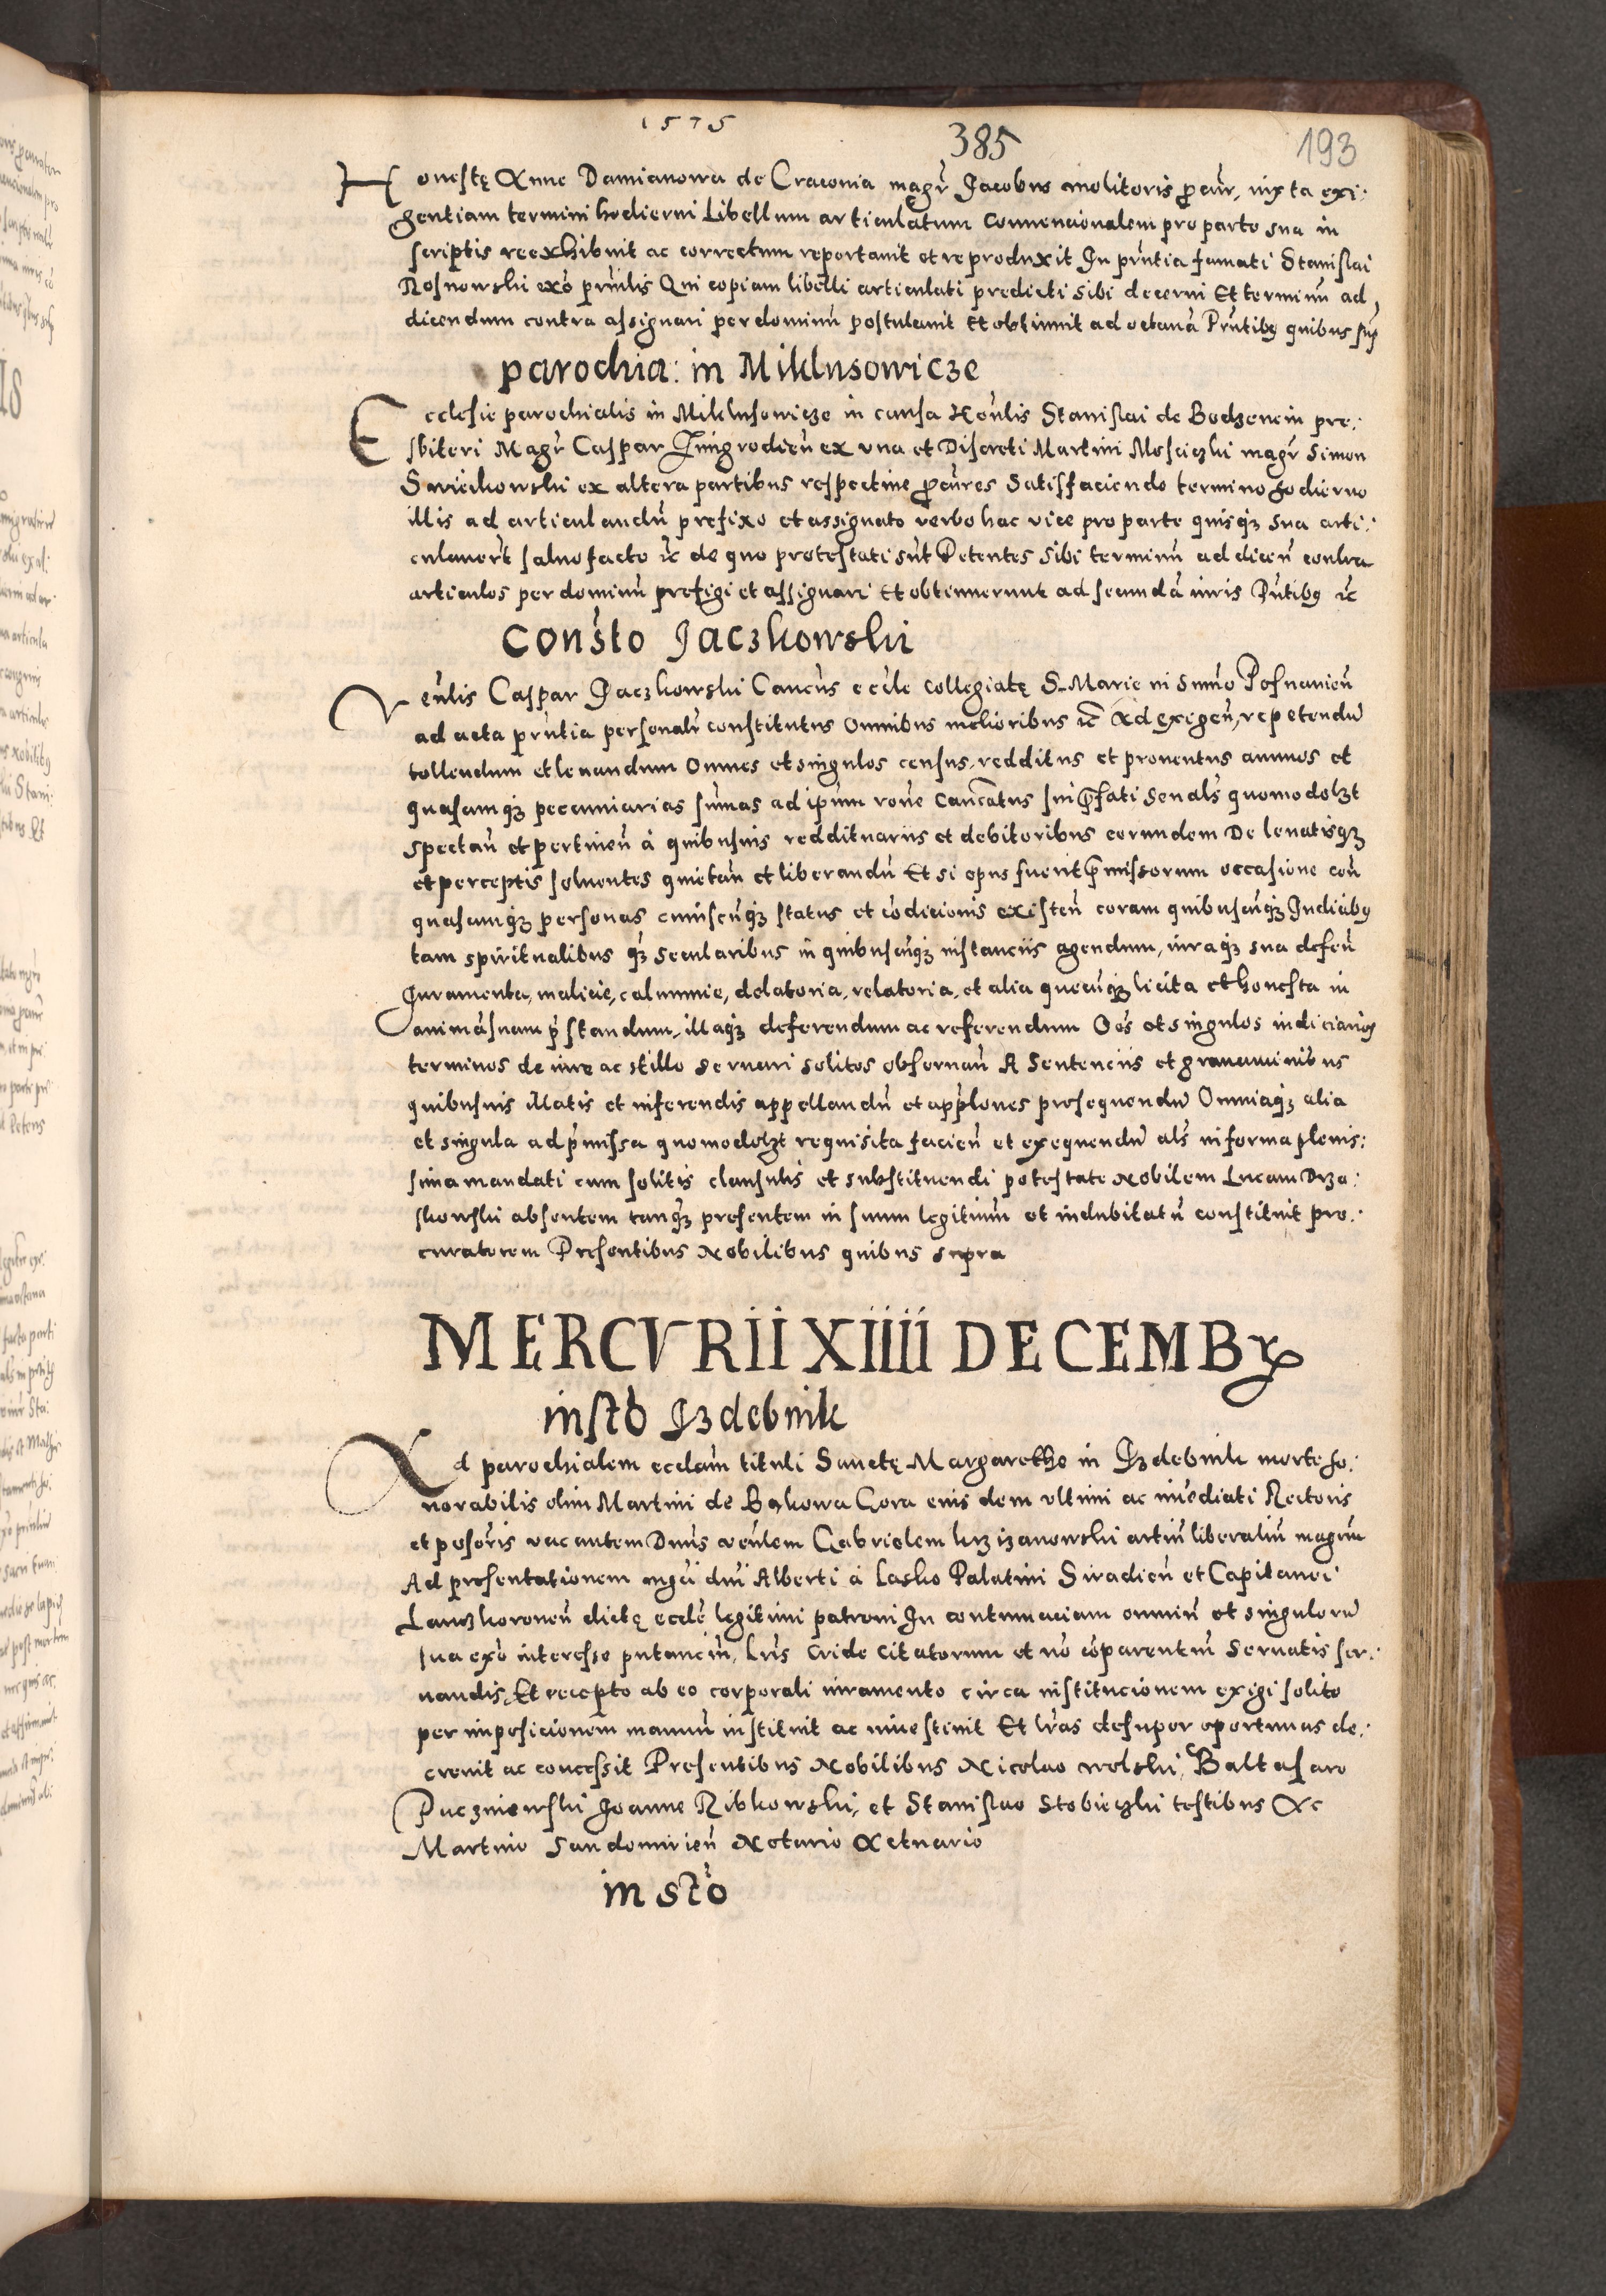 1575
385
193
Honestę Anne Damianowa de Cracovia magr̃ Jacobus molitoris p̱cur̃, iuxta exi:
gentiam termini hodierni Libellum articulatum Connencionalem pro parte sua in
scriptis reexhibuit ac correctum reportauit et reproduxit In pñtia famati Stanislai
Rosnowski exõ pñalis Qui copiam libelli articulati predicti sibi decerni Et terminũ ad
dicendum contra assignari per dominũ postulauit Et obtinuit ad octauã Pñtibq quibus sup
parochia: in Miklusowicze
Ecclesie parochialis in Miklusowicze in causa Hoñlis Stanislai de Bodzencin pre:
sbiteri Magr̃ Caspar Junigrodieñ ex vna et Discreti Martini Mosciczki magr̃ Simon
Swieikowski ex altera partibus respectiue p̱cures Satisfaciendo termino hodierno
illis ad articulandũ prefixo et assignato verbo hac vice pro parte quisqz sua arti:
culauer̃t saluo facto ꝛc de quo protestati sũt Petentes sibi terminũ ad dicenũ contra
articulos per dominũ prefigi et assignari Et obtinuerunt ad secundã iuris Pñtibq ꝛc
Consto Jaczkowski
Veñlis Caspar Jaczkowski Cancũs eccle collegiatę S. Marie in Summo Posnanieñ
ad acta pñtia personalr̃ constitutus Omnibus melioribus ꝛc Ad exigeñ, repetendũ
tollendum et leuandum Omnes et singulos census, redditus et prouentus annuos et
quascumqz pecuniarias sũmas ad ipsum rone Cancatus sui p̃fati Seu als quomodolzt
spectañ et pertineñ à quibusuis reddituariis et debitoribus eorundem De leuatisqz
et perceptis soluentes quietañ et liberandũ Et si opus fuerit p̃missorum occasione coñ
quascumqz personas cuiuscũqz status et cõdicionis existeñ coram quibuscũqz Iudicibq
tam spiritualibus qz secularibus in quibuscũqz instanciis agendum, iuraqz sua defeñ
Juramenta, malicie, calumnie, delatoria, relatoria, et alia quecũqz licita et honesta in
animã suam p̃standum, illaqz deferendum ac referendum Oẽs et singulos iudiciarios
terminos de iure ac stillo seruari solitos obseruañ A Sentenciis et grauaminibus
quibusuis illatis et inferendis appellandũ et app̃lones prosequendũ Omniaqz alia
et singula ad p̃missa quomodolzt requisita facieñ et exequendũ als in forma plenis:
sima mandati cum solitis clausulis et substituendi potestate Nobilem Lucam Drza:
skowski absentem tanqz presentem in suum legitimũ et indubitatũ constituit pro:
curatorem Presentibus Nobilibus quibus supra
MERCVRII XIIIII DECEMBꝝ
insto Izdebnik
Ad parochialem ecclam tituli Sanctę Margarethe in Izdebnik morte ho:
norabilis olim Martini de Bąkowa Gora eius dem vltimi ac imediati Rectoris
et posoris vacantem Dnũs veñlem Gabrielem krzizanowski artiũ liberaliũ magrũ
Ad presentationem mgci dni Alberti à Lasko Palatini Siradieñ et Capitanei
Lanczkoroneñ dictę eccle legitimi patroni In contumaciam omniũ et singulorũ
sua exõ interesse putanciũ, Lris Cride Citatorum et nõ cõparentiũ Seruatis ser:
uandis, Et recepto ab eo corporali iuramento circa institucionem exigi solito
per imposicionem manuũ instituit ac inuestiuit Et lras desuper oportunas de:
creuit ac concessit Presentibus Nobilibus Nicolao wolski, Baltasaro
Pucznieuski Joanne Ribkowski, et Stanislao Stobieczki testibus &c
Martino Sandomirieñ Notario Actuario
insto